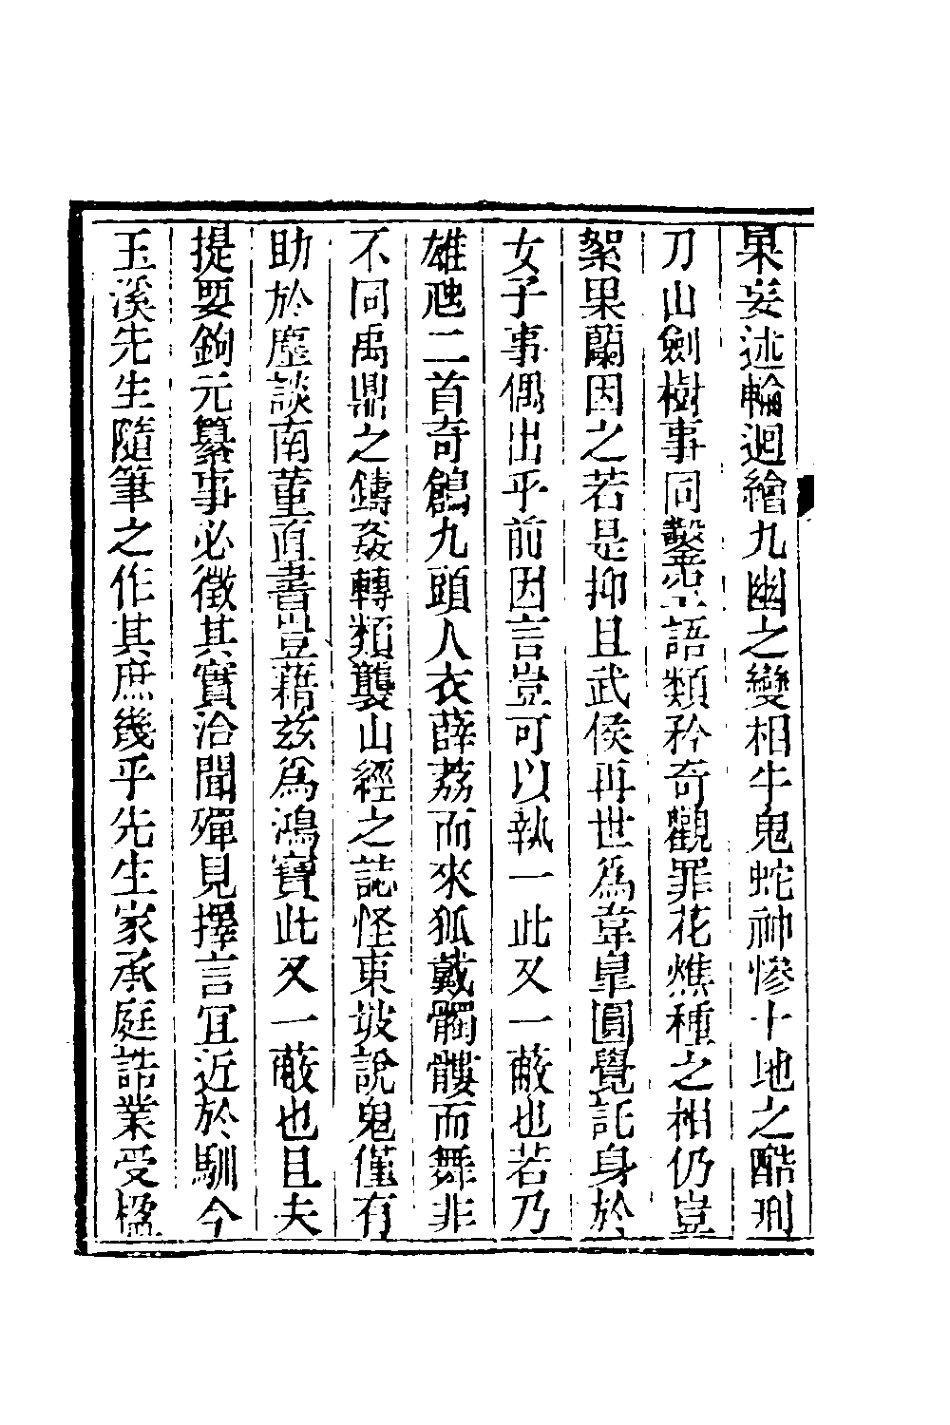 果妄述輪迴繪九幽之變相牛鬼蛇神慘十地之酷刑
刀山劍樹事同鑿空語類矜奇觀罪花燋種之相仍豈
絮果蘭因之若是抑且武侯再世爲韋臯圓覺託身於
女子事偶出乎前因言豈可以執一此又一蔽也若乃
雄虺二首奇鶬九頭人衣薜荔而來狐戴髑髏而舞非
不同禹鼎之鑄姦轉類襲山經之誌怪東坡說鬼僅有
助於麈談南董直書豈藉兹爲鴻寶此又一蔽也且夫
提要鉤元纂事必徵其實洽聞殫見擇言宜近於馴今
玉溪先生隨筆之作其庶幾乎先生家承庭誥業受楹